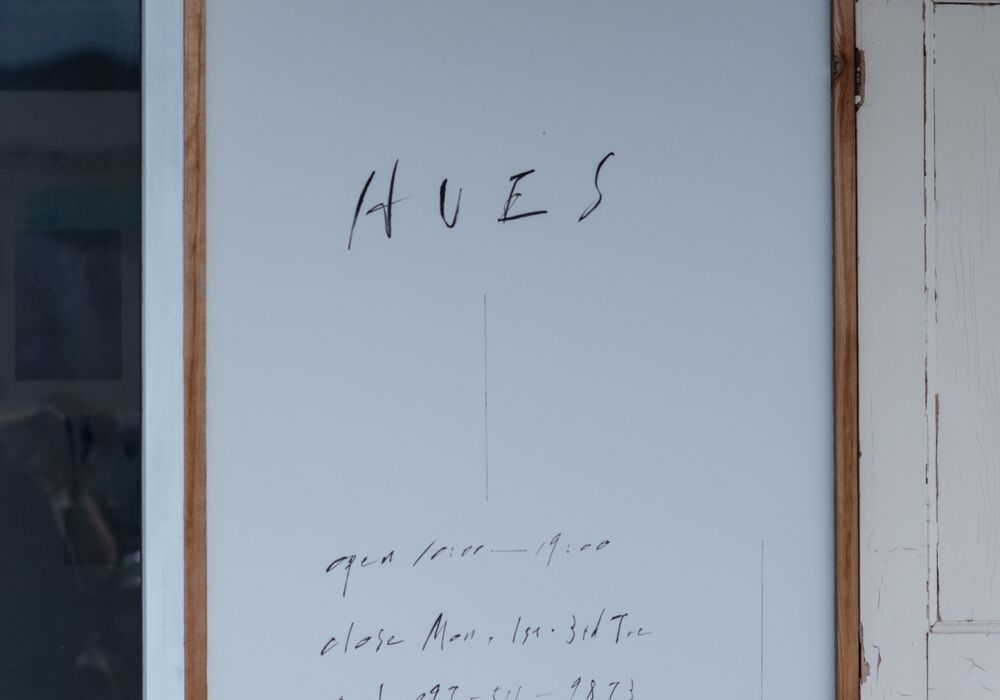 HUES
open 10:00 — 19:00
close Mon, 1st・3rd Tue